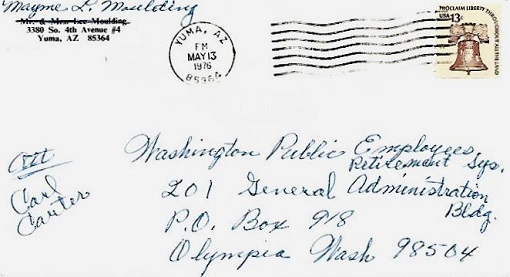 Mayme L. Moulding
Mr. & Mrs. Lee Moulding
3380 So. 4th Avenue #4
Yuma, AZ 85364
YUMA, AZ
PM
MAY 13
1976
85364
PROCLAIM LIBERTY THROUGHOUT ALL THE LAND
USA 13c
Att
Carl
Carter
Washington Public Employees
Retirement Sys.
201 General Administration
Bldg.
P.O. Box 918
Olympia Wash 98504